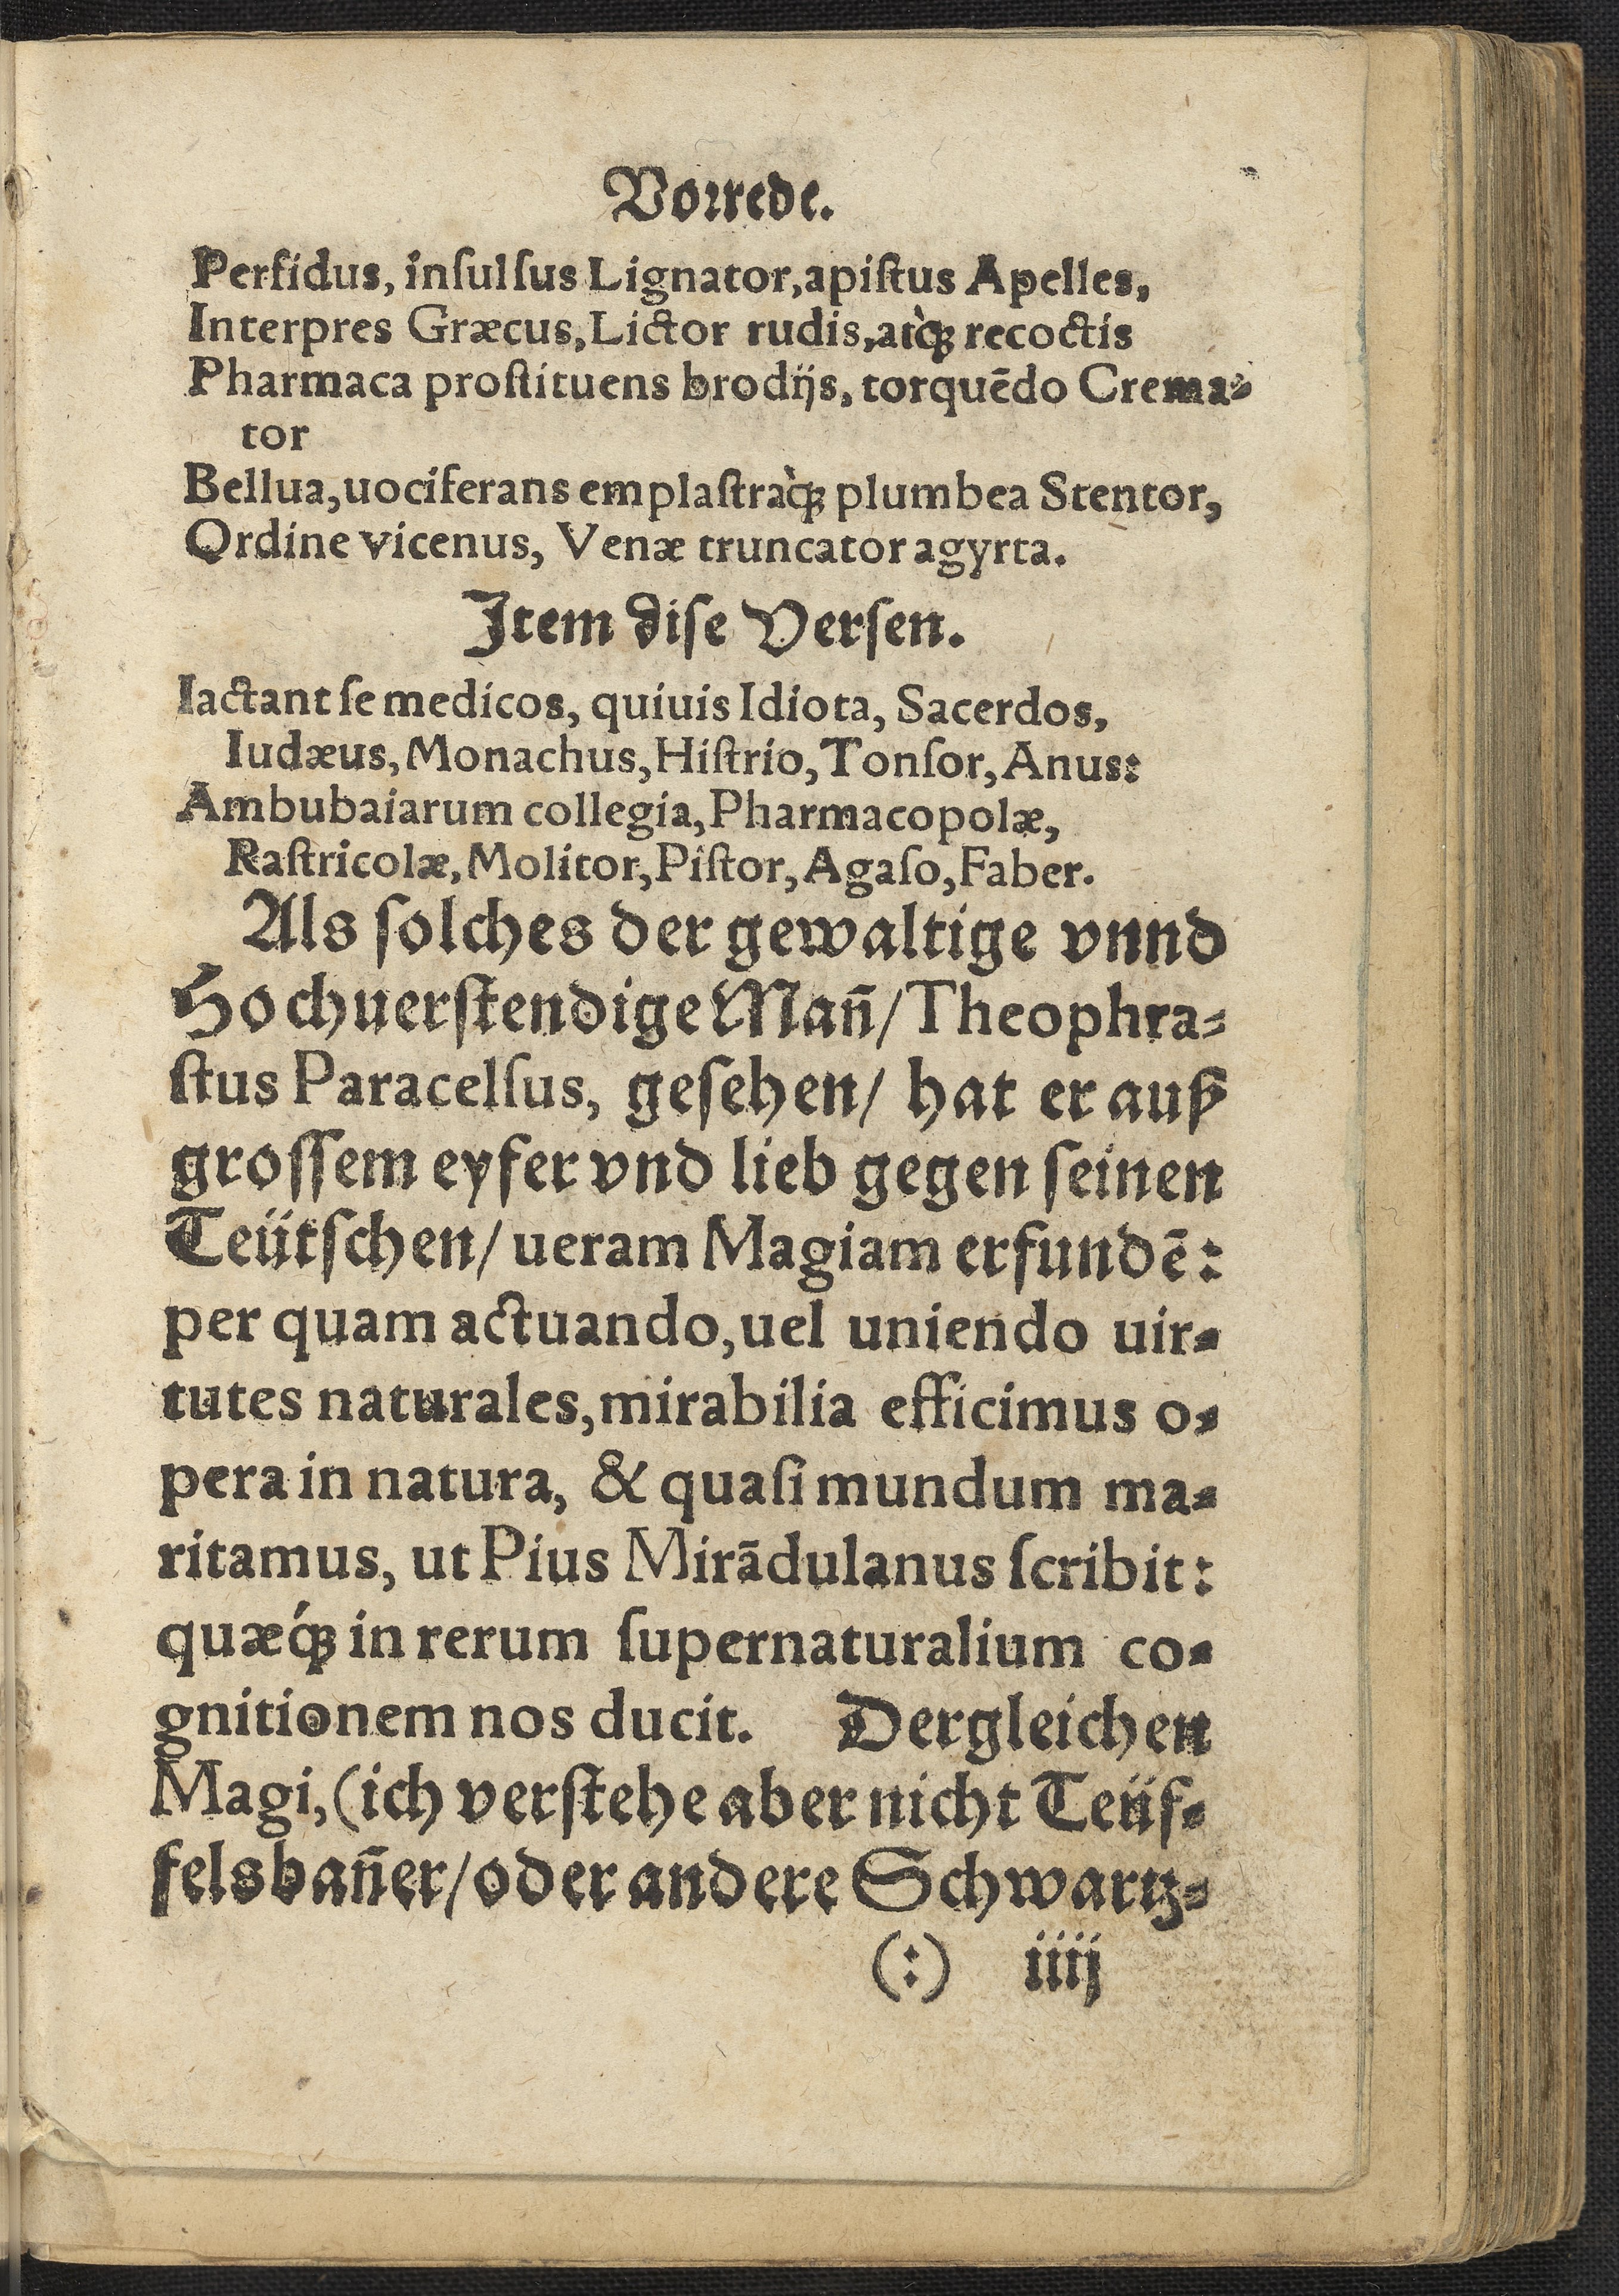 Vorrede.
Perfidus, inſulſus Lignator, apiſtus Apelles,
Interpres Græcus, Lictor rudis, atq̀ꝫ recoctis
Pharmaca proſtituens brodijs, torquēdo Crema-
tor
Bellua, uociferans emplaſtraq̀ꝫ plumbea Stentor,
Ordine vicenus, Venæ truncator agyrta.
Item diſe Verſen.
Iactant ſe medicos, quiuis Idiota, Sacerdos,
Iudæus, Monachus, Hiſtrio, Tonſor, Anus:
Ambubaiarum collegia, Pharmacopolæ,
Raſtricolæ, Molitor, Piſtor, Agaſo, Faber.
Als ſolches der gewaltige vnnd
Hochuerſtendige Mañ/ Theophra-
ſtus Paracelſus, geſehen/ hat er auß
groſſem eyfer vnd lieb gegen ſeinen
Teütſchen/ ueram Magiam erfundē:
per quam actuando, uel uniendo uir-
tutes naturales, mirabilia efficimus o-
pera in natura, & quaſi mundum ma-
ritamus, ut Pius Mirādulanus ſcribit:
quæq́ꝫ in rerum ſupernaturalium co-
gnitionem nos ducit. Dergleichen
Magi, (ich verſtehe aber nicht Teüf-
felsbañer/ oder andere Schwartz-
(:) iiij